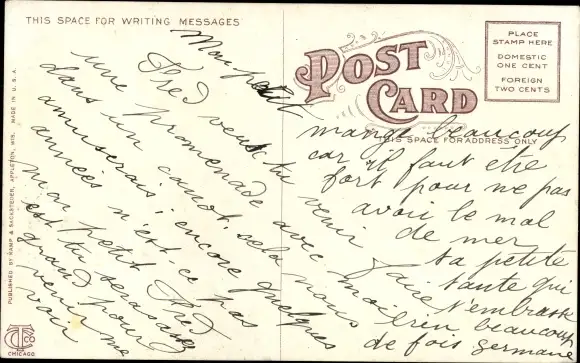 THIS SPACE FOR WRITING MESSAGES
POST CARD
THIS SPACE FOR ADDRESS ONLY
PLACE
STAMP HERE
DOMESTIC
ONE CENT
FOREIGN
TWO CENTS
Mon petit
Fred veux tu venir faire
une promenade avec moi
dans un canot, sela nous
amuserais; encore quelques
années n'est ce pas
mon petit Fred
est tu seras assez
grand pour
venir me
voir
mange beaucoup
car il faut etre
fort pour ne pas
avoir le mal
de mer
ta petite
tante qui
t'embrasse
bien beaucoup
de fois Germaine
PUBLISHED BY KAMP & SACKSTEDER, APPLETON, WIS. MADE IN U.S.A.
CT CO
CHICAGO